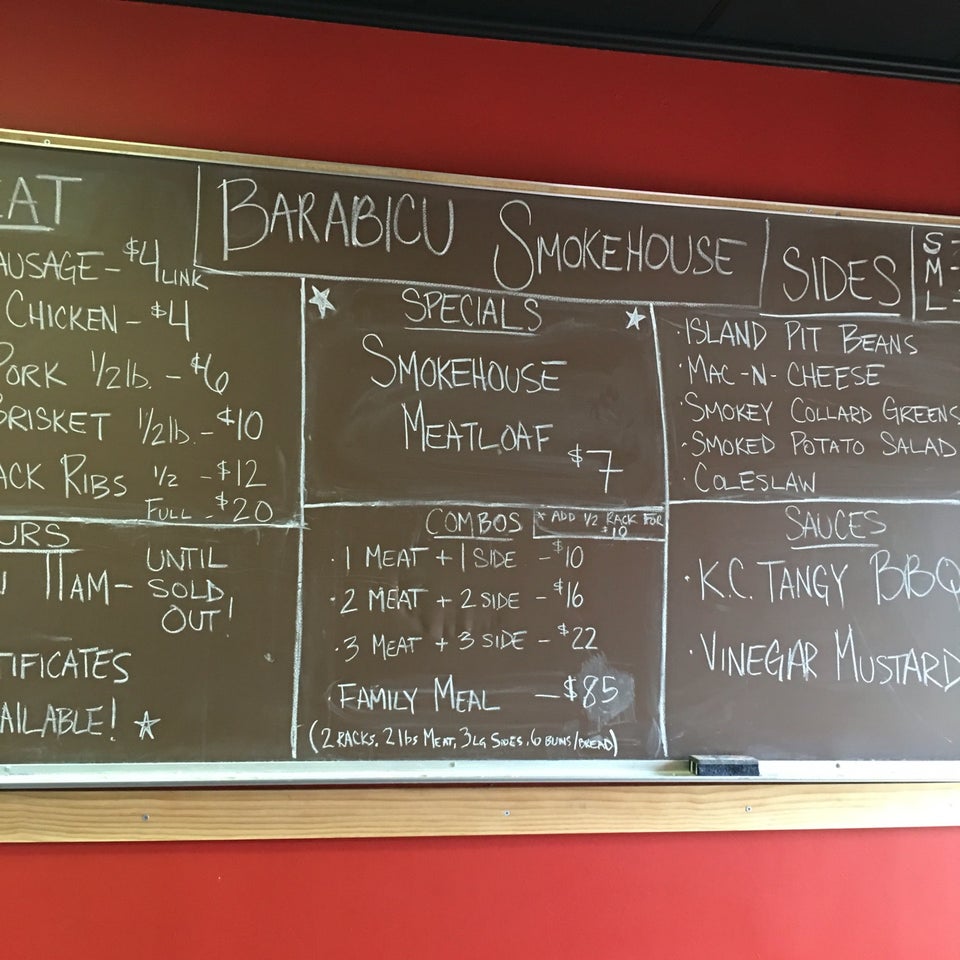 BARABICU SMOKEHOUSE
EAT
AUSAGE - $4 LINK
CHICKEN - $4
PORK 1/2 lb. - $6
BRISKET 1/2 lb. - $10
ACK RIBS 1/2 - $12
FULL - $20
URS
11AM - UNTIL
SOLD
OUT!
TIFICATES
AILABLE!
SPECIALS
SMOKEHOUSE
MEATLOAF
$7
COMBOS
* ADD 1/2 RACK FOR
$10
· 1 MEAT + 1 SIDE - $10
· 2 MEAT + 2 SIDE - $16
· 3 MEAT + 3 SIDE - $22
FAMILY MEAL - $85
(2 RACKS, 2 lbs MEAT, 3 LG SIDES, 6 BUNS/BREAD)
SIDES
S
M -
L -
· ISLAND PIT BEANS
· MAC-N-CHEESE
· SMOKEY COLLARD GREENS
· SMOKED POTATO SALAD
· COLESLAW
SAUCES
· K.C. TANGY BBQ
· VINEGAR MUSTARD